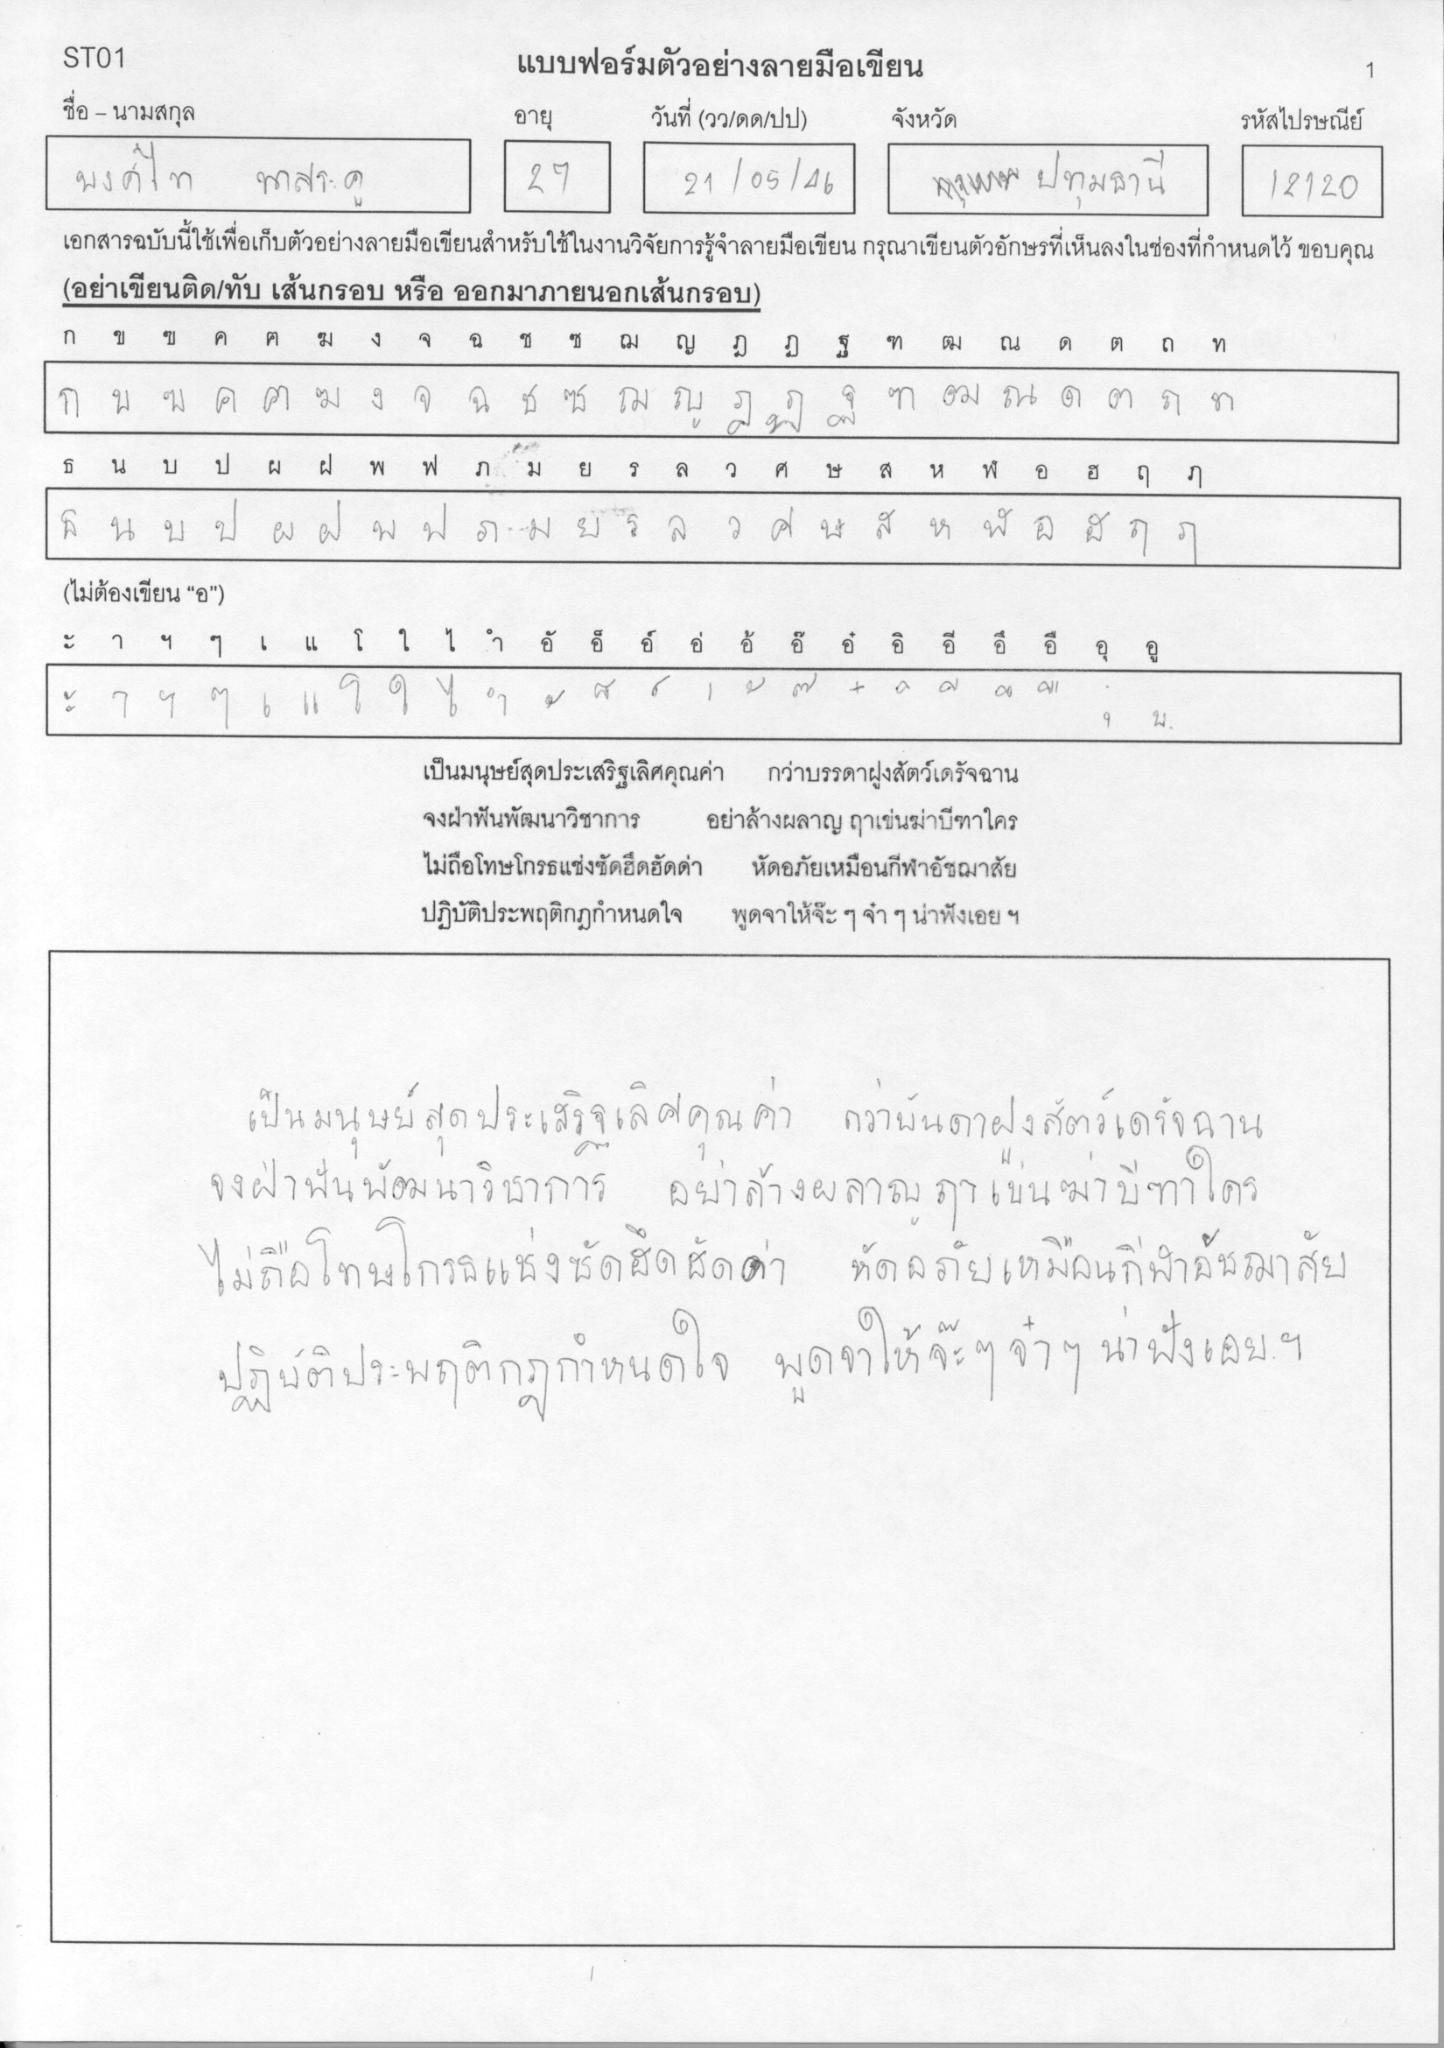 ST01
แบบฟอร์มตัวอย่างลายมือเขียน
1
ชื่อ – นามสกุล อายุ วันที่ (วว/ดด/ปป) จังหวัด รหัสไปรษณีย์
พงค์ไท 27 21/05/46 ปทุมธานี 12120
เอกสารฉบับนี้ใช้เพื่อเก็บตัวอย่างลายมือเขียนสำหรับใช้ในงานวิจัยการรู้จำลายมือเขียน กรุณาเขียนตัวอักษรที่เห็นลงในช่องที่กำหนดไว้ ขอบคุณ
(อย่าเขียนติด/ทับ เส้นกรอบ หรือ ออกมาภายนอกเส้นกรอบ)
ก ข ฃ ค ฅ ฆ ง จ ฉ ช ซ ฌ ญ ฎ ฏ ฐ ฑ ฒ ณ ด ต ถ ท
ก ข ฃ ค ฅ ฆ ง จ ฉ ช ซ ฌ ญ ฎ ฏ ฐ ฑ ฒ ณ ด ต ถ ท
ธ น บ ป ผ ฝ พ ฟ ภ ม ย ร ล ว ศ ษ ส ห ฬ อ ฮ ฤ ฦ
ธ น บ ป ผ ฝ พ ฟ ภ ม ย ร ล ว ศ ษ ส ห ฬ อ ฮ ฤ ฦ
(ไม่ต้องเขียน “อ”)
ะ า ฯ ๆ เ แ โ ใ ไ ำ อั อ็ อ์ อ่ อ้ อ๊ อ๋ อิ อี อึ อื อุ อู
ะ า ฯ ๆ เ แ โ ใ ไ ำ ั ็ ์ ่ ้ ๊ ๋ ิ ี ึ ื ุ ู
เป็นมนุษย์สุดประเสริฐเลิศคุณค่า กว่าบรรดาฝูงสัตว์เดรัจฉาน
จงฝ่าฟันพัฒนาวิชาการ อย่าล้างผลาญ ฤาเข่นฆ่าบีฑาใคร
ไม่ถือโทษโกรธแช่งซัดฮึดฮัดด่า หัดอภัยเหมือนกีฬาอัชฌาสัย
ปฏิบัติประพฤติกฎกำหนดใจ พูดจาให้จ๊ะ ๆ จ๋า ๆ น่าฟังเอย ฯ
เป็นมนุษย์สุดประเสริฐเลิศคุณค่า กว่าบันดาฝูงสัตว์เดรัจฉาน
จงฝ่าฟันพัฒนาวิชาการ อย่าล้างผลาญฤาเข่นฆ่าบีฑาใคร
ไม่ถือโทษโกรธแช่งซัดฮึดฮัดด่า หัดอภัยเหมือนกีฬาอัชฌาสัย
ปฏิบัติประพฤติกฎกำหนดใจ พูดจาให้จ๊ะๆจ๋าๆน่าฟังเอย.ฯ